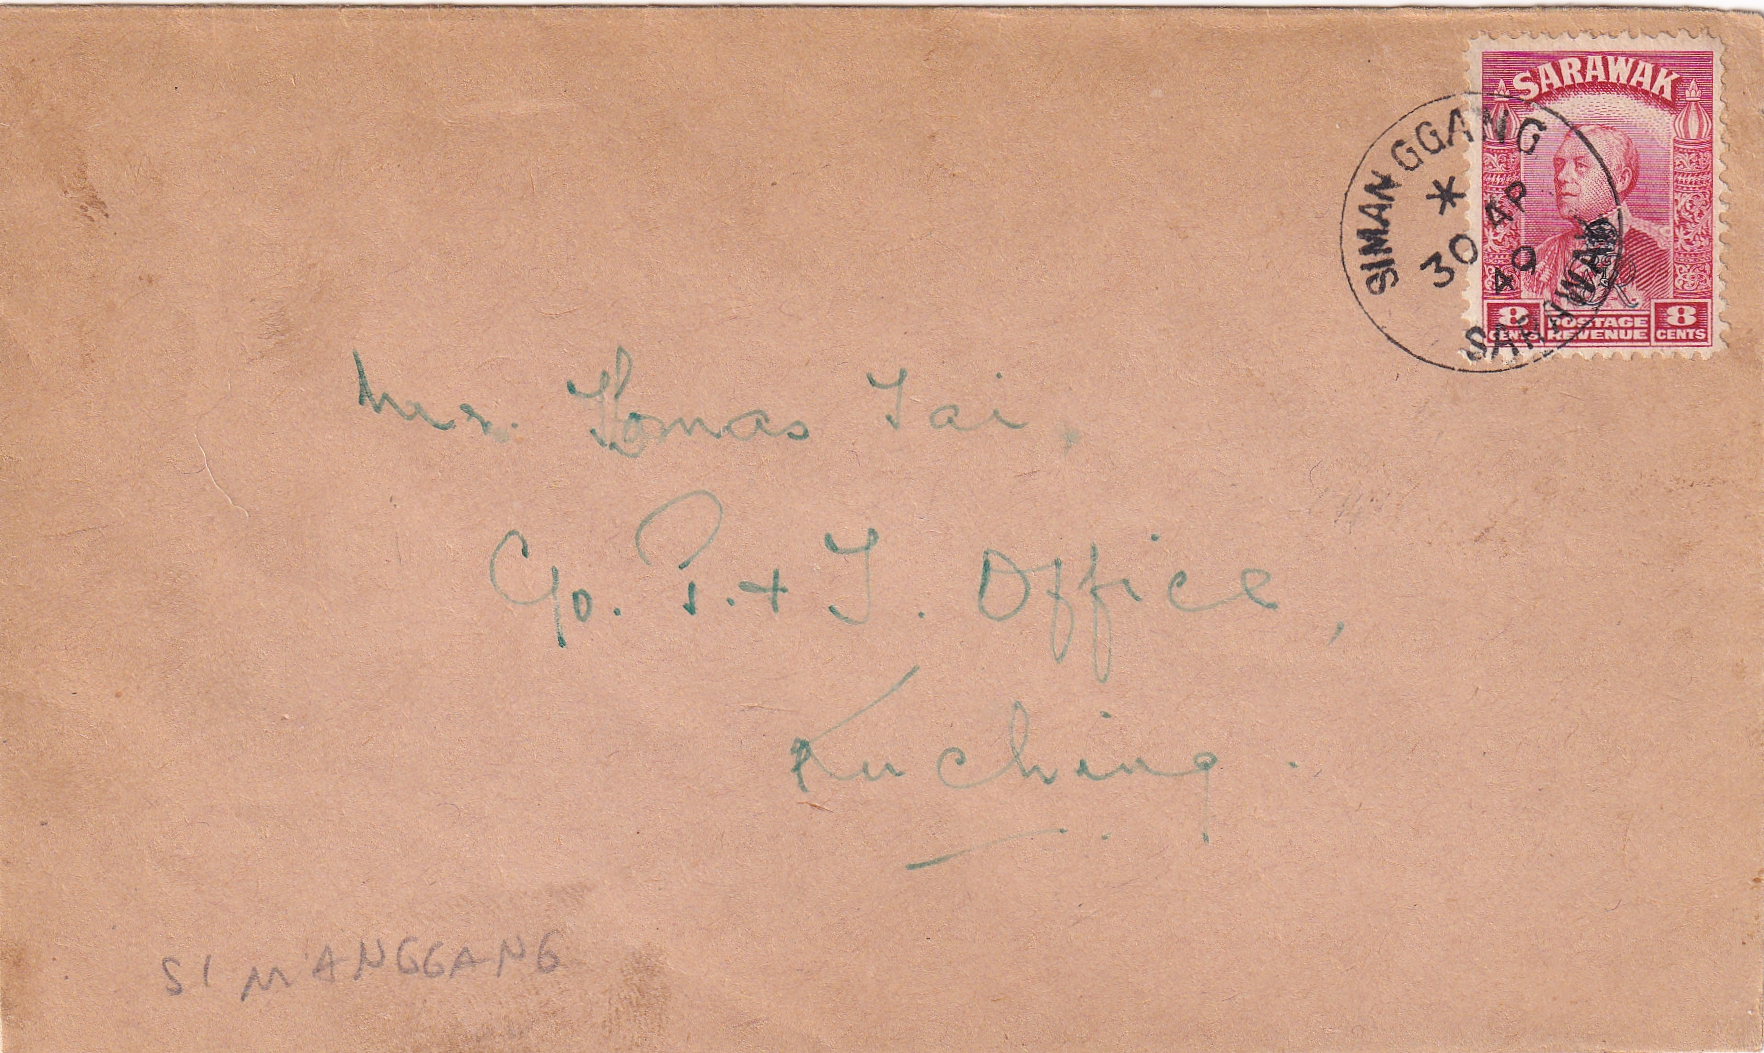 SARAWAK
SIMANGGANG
*
30 AP
49
SARAWAK
8 CENTS
POSTAGE REVENUE
8 CENTS
Mr. Thomas Tai,
C/o. P. + T. Office,
Kuching.
SIMANGGANG